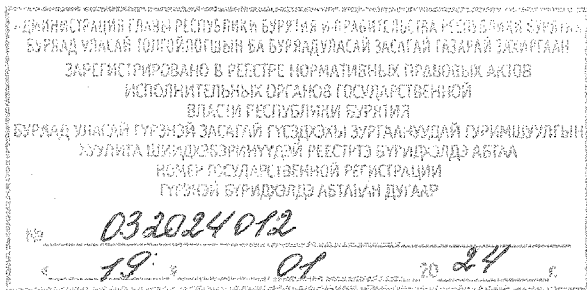 АДМИНИСТРАЦИЯ ГЛАВЫ РЕСПУБЛИКИ БУРЯТИЯ И ПРАВИТЕЛЬСТВА РЕСПУБЛИКИ БУРЯТИЯ
БУРЯАД УЛАСАЙ ТОЛГОЙЛОГШЫН БА БУРЯАД УЛАСАЙ ЗАСАГАЙ ГАЗАРАЙ ЗАХИРГААН
ЗАРЕГИСТРИРОВАНО В РЕЕСТРЕ НОРМАТИВНЫХ ПРАВОВЫХ АКТОВ
ИСПОЛНИТЕЛЬНЫХ ОРГАНОВ ГОСУДАРСТВЕННОЙ
ВЛАСТИ РЕСПУБЛИКИ БУРЯТИЯ
БУРЯАД УЛАСАЙ ГҮРЭНЭЙ ЗАСАГАЙ ГҮЙСЭДХЭХЫ ЗУРГААНУУДАЙ ГУРИМШУУЛГЫН
ХУУЛИТА ШИИДХЭБЭРИНҮҮДЭЙ РЕЕСТРТЭ БҮРИДХЭЛДЭ АБТАА
НОМЕР ГОСУДАРСТВЕННОЙ РЕГИСТРАЦИИ
ГҮРЭНЭЙ БҮРИДХЭЛДЭ АБТАҺАН ДУГААР
№ 032024012
« 19 » 01 20 24 г.